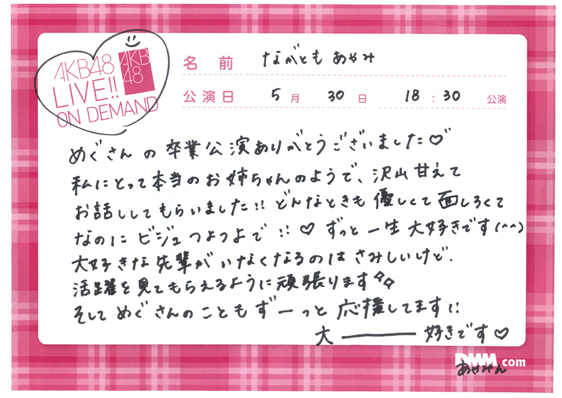 AKB48
LIVE!!
ON DEMAND
AKB
48
名前 ながとも あやみ
公演日 5月 30日 18:30 公演
めぐさんの卒業公演ありがとうございました♡
私にとって本当のお姉ちゃんのようで、沢山甘えて
お話ししてもらいました!! どんなときも優しくて面しろくて
なのにビジュつよつよで!!♡ ずっと一生大好きです(^^)
大好きな先輩がいなくなるのはさみしいけど、
活躍を見てもらえるように頑張ります
そしてめぐさんのこともずーっと応援してます!!
大――好きです♡
DMM.com
あやみん